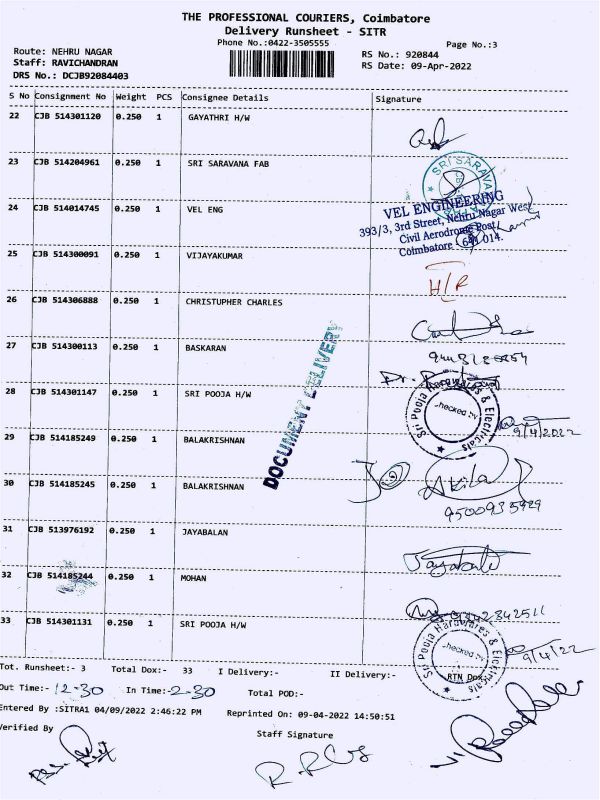 THE PROFESSIONAL COURIERS, Coimbatore
Delivery Runsheet - SITR
Phone No.:0422-3505555
Page No.:3
Route: NEHRU NAGAR
Staff: RAVICHANDRAN
DRS No.: DCJB92084403
RS No.: 920844
RS Date: 09-Apr-2022
S No Consignment No Weight PCS Consignee Details Signature
22 CJB 514301120 0.250 1 GAYATHRI H/W
23 CJB 514204961 0.250 1 SRI SARAVANA FAB
SRI SARAVANA
24 CJB 514014745 0.250 1 VEL ENG
VEL ENGINEERING
393/3, 3rd Street, Nehru Nagar West
Civil Aerodrome Post,
Coimbatore 641 014.
25 CJB 514300091 0.250 1 VIJAYAKUMAR
H/R
26 CJB 514306888 0.250 1 CHRISTUPHER CHARLES
27 CJB 514300113 0.250 1 BASKARAN
DOCUMENT DELIVERY
28 CJB 514301147 0.250 1 SRI POOJA H/W
Sri Pooja Hardwares & Electricals
Checked by
9/4/2022
29 CJB 514185249 0.250 1 BALAKRISHNAN
30 CJB 514185245 0.250 1 BALAKRISHNAN
Akila
9500935929
31 CJB 513976192 0.250 1 JAYABALAN
Jayabal
32 CJB 514185244 0.250 1 MOHAN
33 CJB 514301131 0.250 1 SRI POOJA H/W
Sri Pooja Hardwares & Electricals
Checked by
9/4/22
Tot. Runsheet:- 3 Total Dox:- 33 I Delivery:- II Delivery:- RTN Dox:
Out Time:- 12-30 In Time:- 2-30 Total POD:-
Entered By :SITRA1 04/09/2022 2:46:22 PM Reprinted On: 09-04-2022 14:50:51
Verified By
Staff Signature